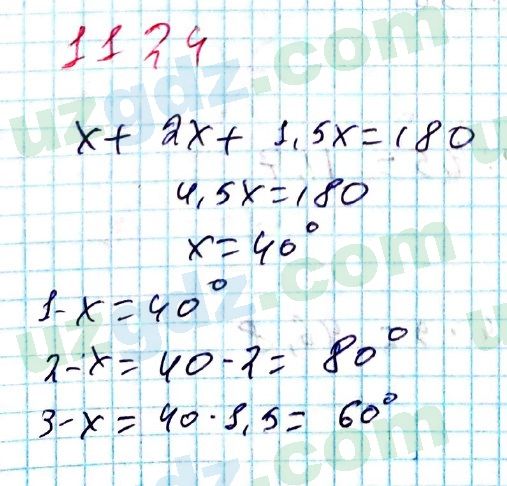 1124
x + 2x + 1,5x = 180
4,5x = 180
x = 40°
1 - x = 40°
2 - x = 40 · 2 = 80°
3 - x = 40 · 1,5 = 60°
uzgdz.com
uzgdz.com
uzgdz.com